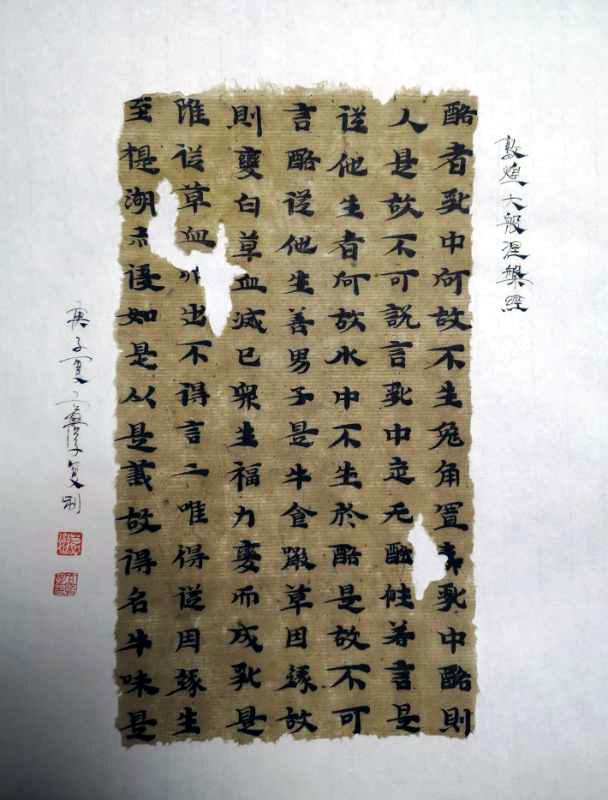 敦煌大般涅槃經
酪者乳中何故不生兔角置毒乳中酪則
人是故不可說言乳中定无酪性若言是
從他生者何故水中不生於酪是故不可
言酪從他生善男子是牛食噉草因緣故
則變白草血滅已眾生福力變而成乳是
雖從草血而出不得言二唯得從因緣生
至提湖亦復如是以是義故得名牛味是
庚子夏复制